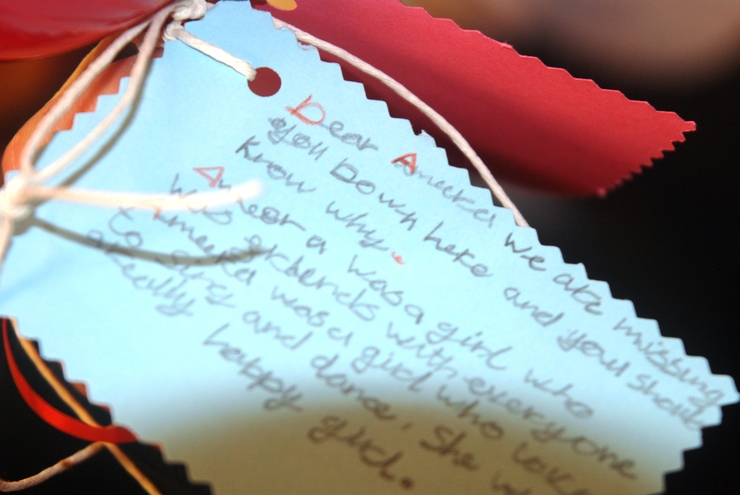 Dear Ameeka we are missing
you Down here and you should
know why.
Ameera was a girl who
was frIends with everyone
Ameeka was a girl who love
to sing and dance. She w
really
happy girl.